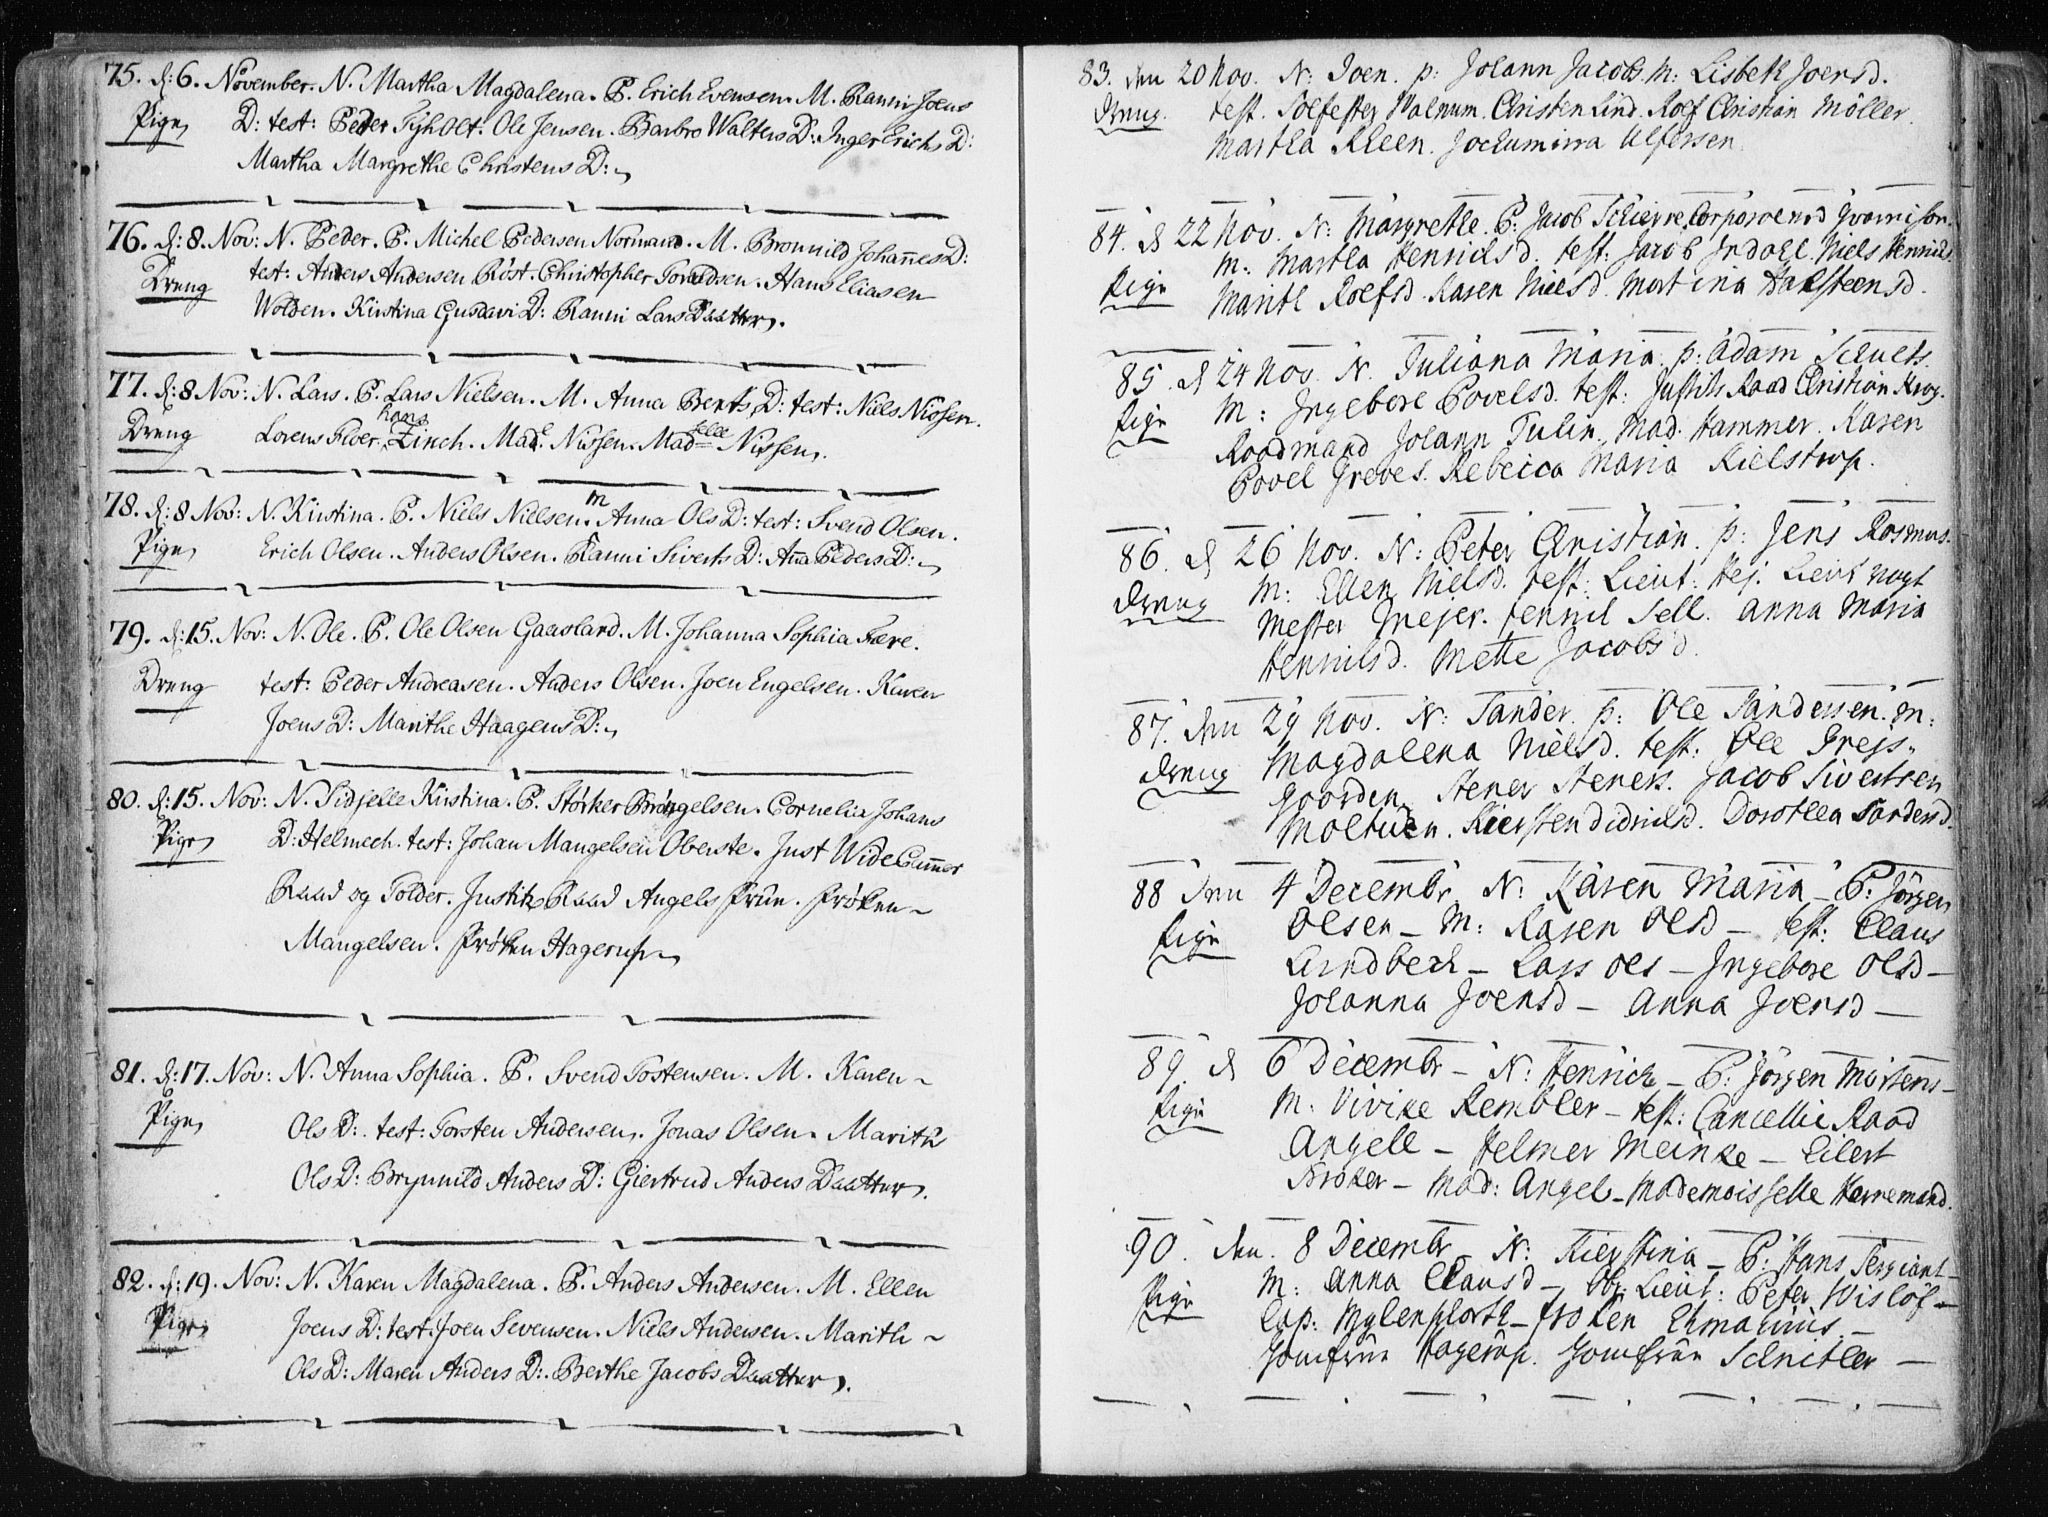 75. d: 6. November. N. Martha Magdalena. P. Erich Evensen. M. Ranni Joens
Pige D: test: Peder Tyholt. Ole Jensen. Barbro Walters D: Inger Erichs D:
Martha Margrethe Christens D:
76. d: 8. Nov: N. Peder. P. Michel Pedersen Normand. M. Bronnild Johañes D:
Dreng test: Anders Andersen Röst. Christopher Hans Eliasen
Wolden. Kirstina Gustavi D: Ranni Lars Daatter.
77. d: 8 Nov: N. Lars. P. Lars Nielsen. M. Anna Bents D: test: Niels Nissen.
hans
Dreng Lorens Floer, Zinch. Mad. Nissen. Madselle Nissen.
78. d: 8 Nov: N. Kirstina. P. Niels Nielsen. M Anna Ols D: test: Svend Olsen.
Pige Erich Olsen. Anders Olsen. Ranni Siverts D: Aña Peders D:
79. d: 15. Nov: N. Ole. P. Ole Olsen Gaasland. M. Johanna Sophia Fære.
Dreng test: Peder Andreasen. Anders Olsen. Joen Engelsen. Karen
Joens D: Marithe Haagens D:
80. d: 15. Nov: N. Sidselle Kirstina. P. Störker Cornelia Johans
Pige D: Helmech. test: Johan Mangelsen Oberste. Just Wide Cam̃er
Raad og Tolder. Justitz Raad Angels Frue. Frøken
Mangelsen. Frøken Hagerup
81. d: 17. Nov: N. Anna Sophia. P. Svend Tostensen. M. Karen
Pige Ols D: test: Torsten Andersen. Jonas Olsen. Marith
Ols D: Brynnild Anders D: Giertrud Anders Daatter.
82. d: 19. Nov: N. Karen Magdalena. P. Anders Andersen. M. Ellen
Pige Joens D: test: Joen Sevensen. Niels Andersen. Marith
Ols D: Maren Anders D: Berthe Jacobs Daatter.
83. den 20 Nov. N: Joen. p: Johann Jacobs. M: Lisbeth Joersd.
Dreng. test. Christen Lind. Rolf Christian Möller.
Martha Kleen. Jochumina Ulfersen.
84. d 22 Nov. N: Margrethe. P: Jacob
Pige M: Martha Henrichsd. test: Jacob Indahl. Niels Henrichs.
Marith Rolfsd. Karen Nielsd. Martina Halsteensd.
85. d 24 Nov. N. Juliana Maria. p: Adam Schults.
Pige M: Ingeborg Povelsd. test: Justits Raad Christian Krog.
Raadmand Johann Tulin. Mad. Hammer. Karen
Povel Greves. Rebecca Maria Kielstrup.
86. d 26 Nov. N: Peter Christian. p: Jens Rasmus.
Dreng M: Ellen Nielsd. test: Lieut: Hej. Lieut Vogt
Mester Mejer. Henrich Sell. Anna Maria
Henrichsd. Mette Jacobsd.
87. den 29 Nov. N: Sander. p: Ole Sandersen. M:
Dreng Magdalena Nielsd. test: Ole Grejs-
gaarden Stener Steners. Jacob Sivertsen
Moltuen. Kiersten Didrichsd. Dorothea Sandersd.
88 den 4 Decembr N: Karen Maria - P: Jörgen
Pige Olsen - M: Karen Olsd - test: Claus
Lindbech - Lars Ols - Ingebore Olsd -
Johanna Joensd - Anna Joensd -
89. d 6 Decembr - N: Henrich - P: Jörgen Mortens -
Pige M: Vivike Rembler - test: Cancellie Raad
Angell - Helmer Meinke - Eilert
Bröker - Mad: Angel - Mademoisselle Hornemand.
90. den. 8 Decembr - N: Kierstina - P: Hans Sergiant -
Pige M: Anna Clausd - Ob: Lieut: Peter Wislöf -
Cap: Mylenphorth - Froken Ehmahuus -
Jomfrue Hagerup. Jomfrue Schnitler -